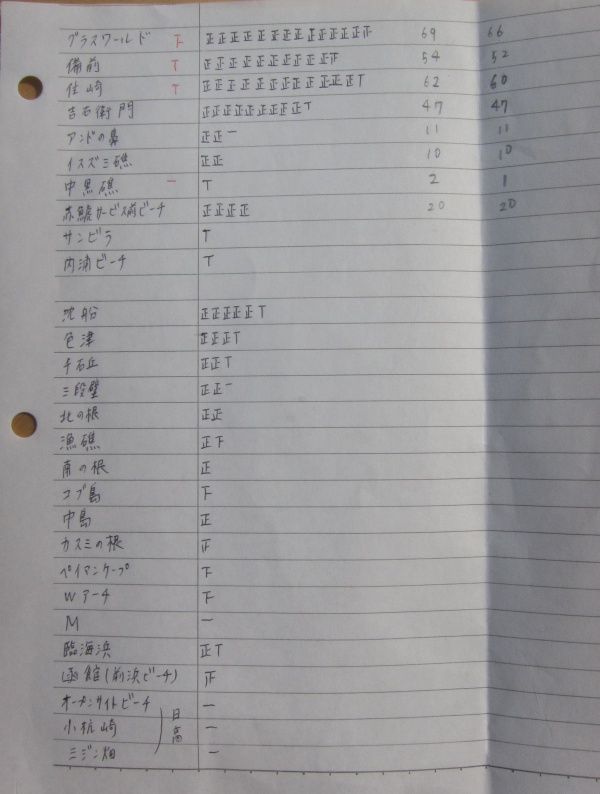 グラスワールド 下 正正正正正正正正正正正正正正 69 66
備前 T 正正正正正正正正正正正 54 52
住崎 T 正正正正正正正正正正正正T 62 60
吉右衛門 正正正正正正正正正T 47 47
アンドの鼻 正正一 11 11
イスズミ礁 正正 10 10
中黒礁 一 T 2 1
赤鯱サービス前ビーチ 正正正正 20 20
サンビラ T
内浦ビーチ T
沈船 正正正正正T
色津 正正正T
千石丘 正正T
三段壁 正正一
北の根 正正
漁礁 正下
南の根 正
コブ島 下
中島 正
カスミの根 正
ペイマンケープ 下
Wアーチ 下
M 一
臨海浜 正T
函館(前浜ビーチ) 正
オーナンサイトビーチ 一
小杭崎 一
ミジン畑 一
日高